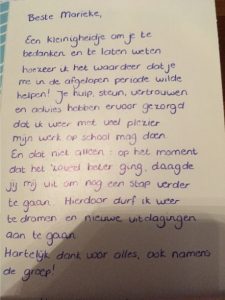 Beste Marieke,
Een kleinigheidje om je te
bedanken en te laten weten
hoezeer ik het waardeer dat je
me in de afgelopen periode wilde
helpen! Je hulp, steun, vertrouwen
en advies hebben ervoor gezorgd
dat ik weer met veel plezier
mijn werk op school mag doen.
En dat niet alleen: op het moment
dat het zoveel beter ging, daagde
jij mij uit om nog een stap verder
te gaan. Hierdoor durf ik weer
te dromen en nieuwe uitdagingen
aan te gaan.
Hartelijk dank voor alles, ook namens
de groep!